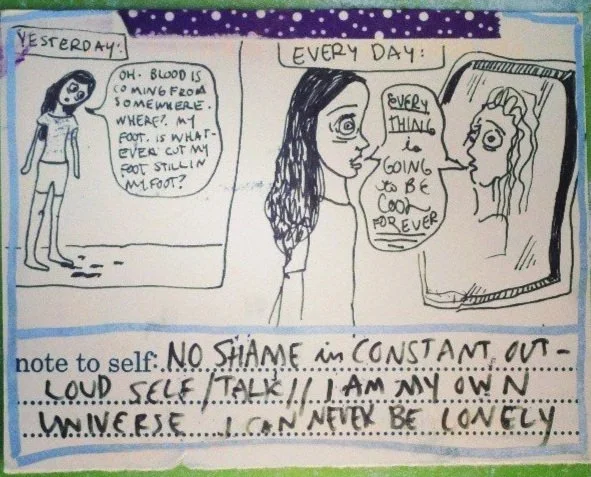 YESTERDAY:
OH. BLOOD IS
COMING FROM
SOMEWHERE.
WHERE? MY
FOOT. IS WHAT-
EVER CUT MY
FOOT STILL IN
MY FOOT?
EVERY DAY:
EVERY
THING
is
GOING
to BE
COOL
FOREVER
note to self: NO SHAME in CONSTANT OUT-
LOUD SELF/TALK// I AM MY OWN
UNIVERSE I CAN NEVER BE LONELY